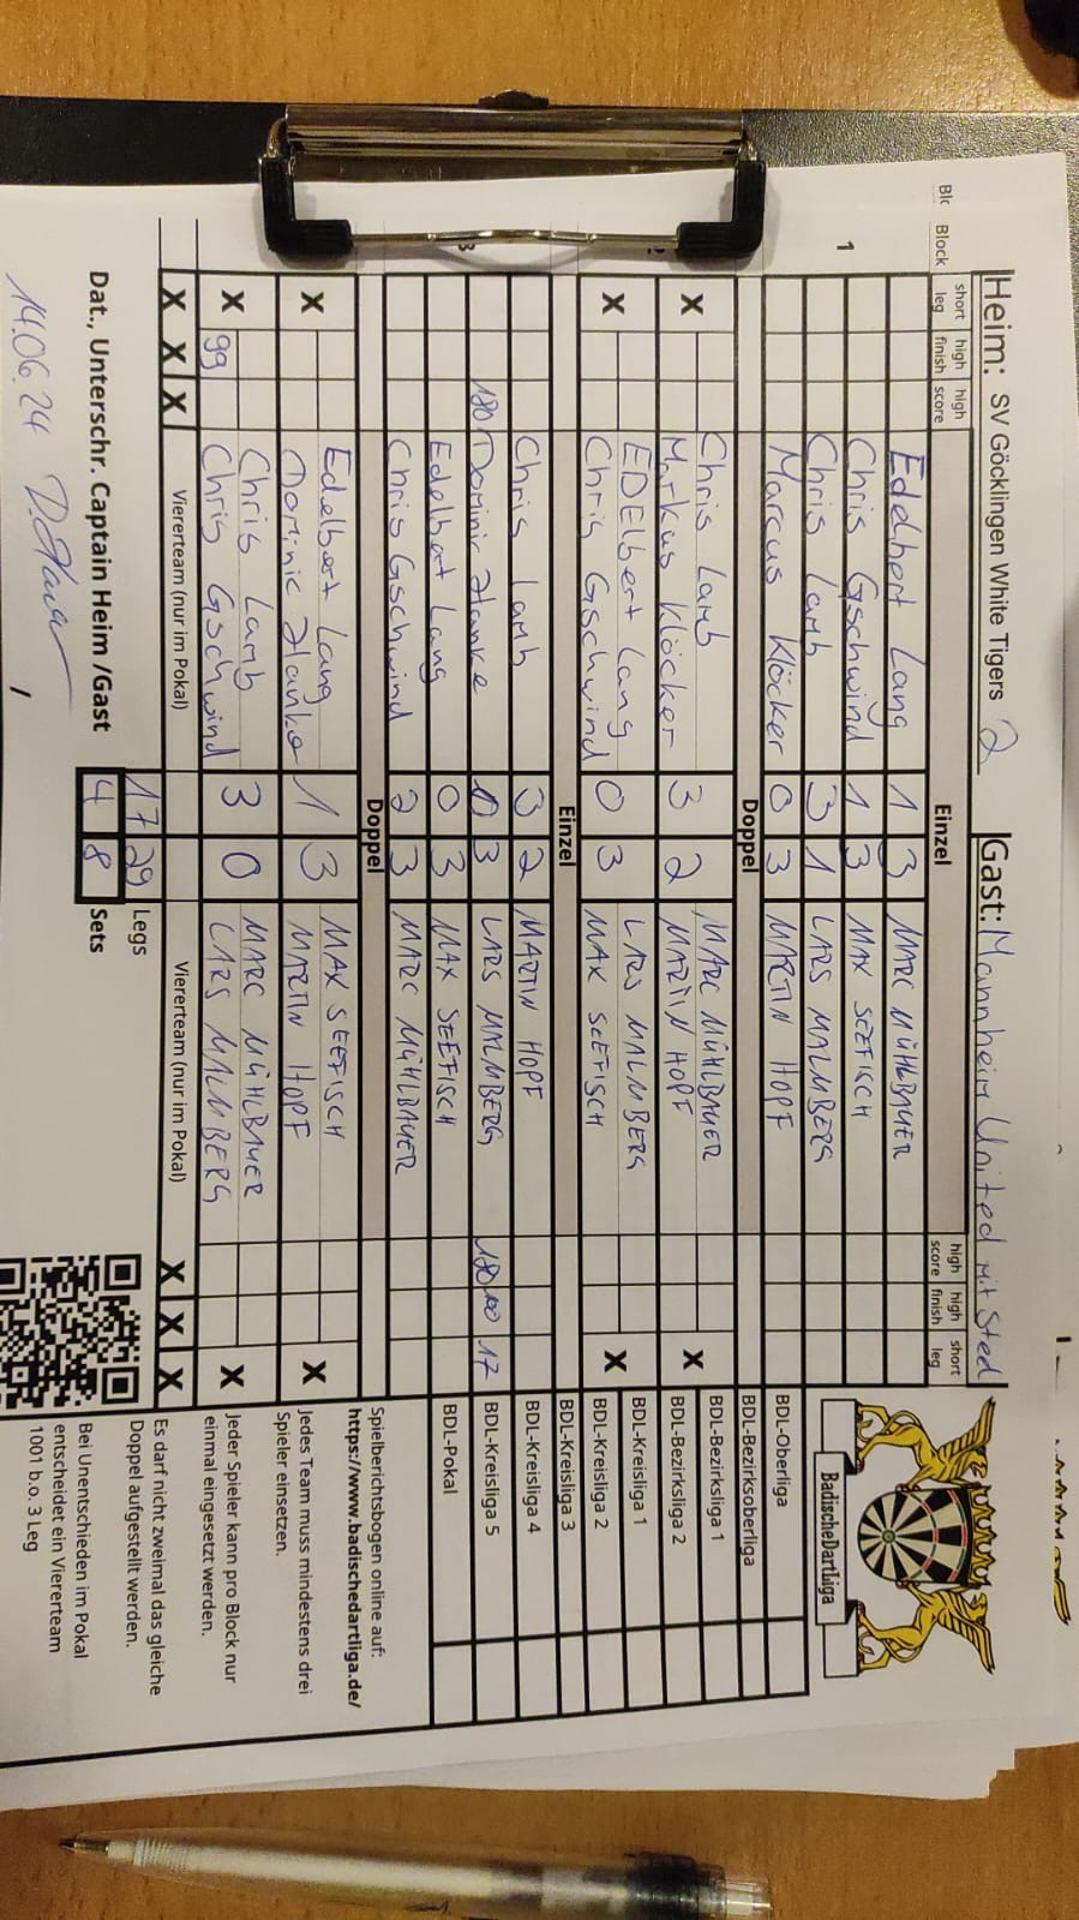 Heim: SV Göcklingen White Tigers 2 Gast: Mannheim United mit Sted
Blc Block short leg high finish high score Einzel high score high finish short leg
Edelbert Lang 1 3 MARC MÜHLBAUER
1 Chris Gschwind 1 3 MAX SEEFISCH
Chris Lamb 3 1 LARS MALMBERG
Marcus Klöcker 0 3 MARTIN HOPF
Doppel
X Chris Lamb 3 2 MARC MÜHLBAUER X
Markus Klöcker MARTIN HOPF
X EDElbert Lang 0 3 LARS MALMBERG X
Chris Gschwind MAX SEEFISCH
Einzel
Chris Lamb 3 2 MARTIN HOPF
3 180 Dominic Hanke 0 3 LARS MALMBERG 180 100 17
Edelbert Lang 0 3 MAX SEEFISCH
Chris Gschwind 2 3 MARC MÜHLBAUER
Doppel
X Edelbert Lang 1 3 MAX SEEFISCH X
Dominic Hanke MARTIN HOPF
X Chris Lamb 3 0 MARC MÜHLBAUER X
99 Chris Gschwind LARS MALMBERG
X X X Viererteam (nur im Pokal) Viererteam (nur im Pokal) X X X
17 29 Legs
Dat., Unterschr. Captain Heim /Gast 4 8 Sets
14.06.24
BadischeDartLiga
BDL-Oberliga
BDL-Bezirksoberliga
BDL-Bezirksliga 1
BDL-Bezirksliga 2
BDL-Kreisliga 1
BDL-Kreisliga 2
BDL-Kreisliga 3
BDL-Kreisliga 4
BDL-Kreisliga 5
BDL-Pokal
Spielberichtsbogen online auf:
https://www.badischedartliga.de/
Jedes Team muss mindestens drei
Spieler einsetzen.
Jeder Spieler kann pro Block nur
einmal eingesetzt werden.
Es darf nicht zweimal das gleiche
Doppel aufgestellt werden.
Bei Unentschieden im Pokal
entscheidet ein Viererteam
1001 b.o. 3 Leg